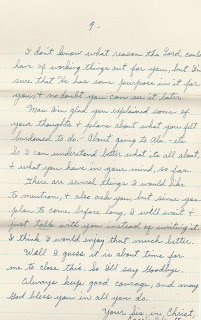 9 -
I don't know what reason the Lord could
have of working things out for you, but I'm
sure that He has some purpose in it for
you, & no doubt you can see it later.
Man am glad you explained some of
your thoughts & plans about what you felt
burdened to do. About going to - etc
So I can understand better what its all about,
& what you have in your mind, so far.
There are several things I would like
to mention, & also ask you, but since you
plan to come before long, I will wait &
just talk with you instead of writing it.
I think I would enjoy that much better.
Well I guess it is about time for
me to close this. So I'll say Goodbye.
Always keep good courage, and may
God bless you in all you do.
Your Sis. in Christ,